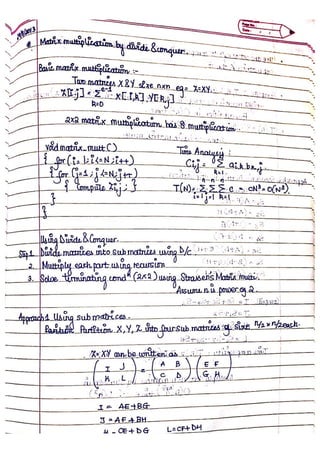 Matrix multiplication by divide & conquer.
Basic matrix multiplication :-
Two matrices X & Y size nxn eq= Z=XY.
Z[i,j] = Σ X[i,k].Y[k,j]
k=0
2x2 matrix multiplication has 8 multiplication
void matrix_mult() Time Analysis:
{ for (i=1; i<=N; i++) Ci,j = Σ ai,k bk,j
{ for (j=1; j<=N; j++) k=1
{ Compute Zi,j; } T(N)= Σ Σ Σ C = CN³ = O(N³).
} i=1 j=1 k=1
}
Using Divide & Conquer.
Step 1. Divide matrices into sub matrices using D/C
2. Multiply each part using recursion
3. Solve terminating cond^n (2x2) using Strassen's Matrix multi.
Assume n is power of 2.
Approach 1 Using sub matrices.
Partition X, Y, Z into four sub matrices of size n/2 x n/2 each.
Z=XY can be written as
( I J ) = ( A B ) ( E F )
( K L ) ( C D ) ( G H )
I = AE+BG
J = AF+BH
K = CE+DG L=CF+DH